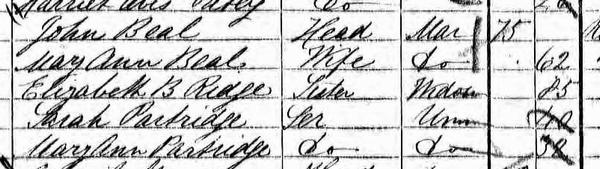 John Beal Head Mar 75
Mary Ann Beal Wife Do 62
Elizabeth B Ridge Sister Widow 85
Sarah Partridge Ser Unm 48
Mary Ann Partridge Do Do 38